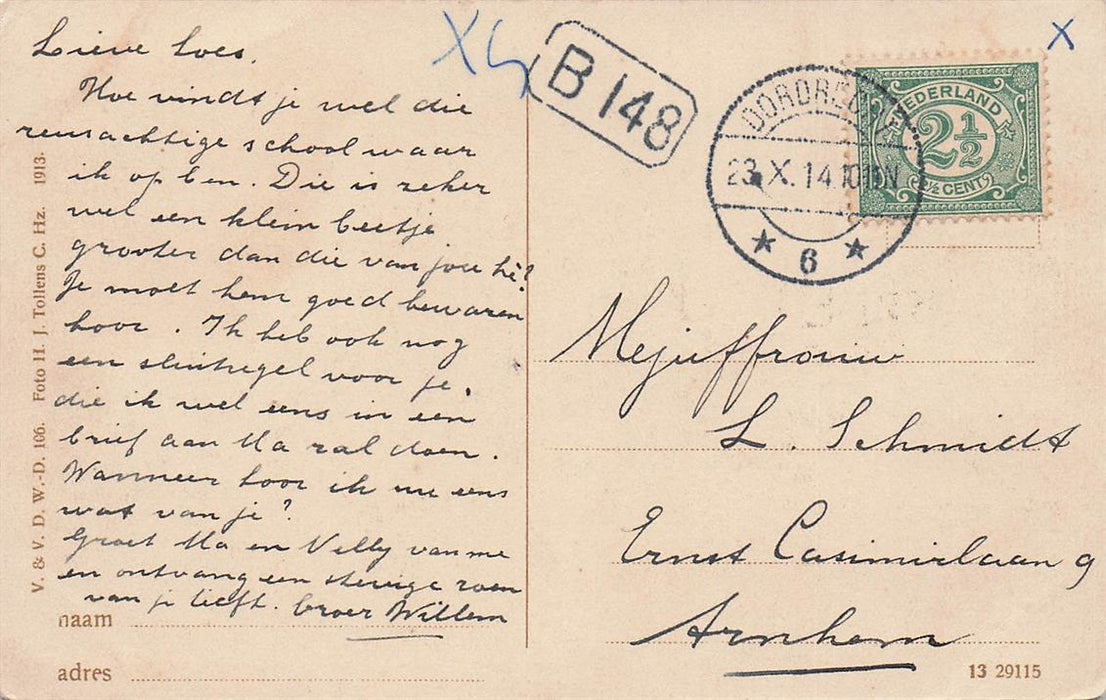 Lieve Loes.
Hoe vindt je wel die
reusachtige school waar
ik op ben. Die is zeker
wel een klein beetje
grooter dan die van jou hè?
Je moet hem goed bewaren
hoor. Ik heb ook nog
een sluitzegel voor je.
die ik wel eens in een
brief aan Ma zal doen.
Wanneer hoor ik nu eens
wat van je?
Groet Ma en Nelly van me
en ontvang een stevige zoen
van je liefh. broer Willem
naam
adres
V. & V. D. W.-D. 106. Foto H. J. Tollens C. Hz. 1913.
B 148
DORDRECHT
23.X.14.10-11N
6
NEDERLAND
2½
2½ CENT
Mejuffrouw
L. Schmidt
Ernst Casimirlaan 9
Arnhem
13 29115